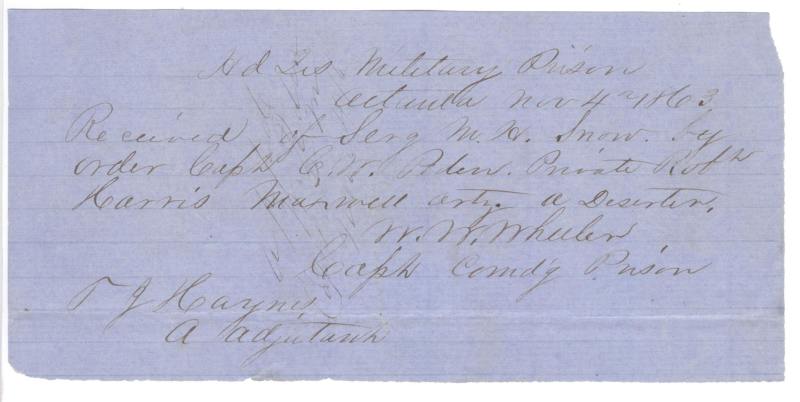 Hd Qrs Military Prison
Atlanta Nov 4th 1863
Received of Serg M. H. Snow. by
order Capt C. W. Private Robt
Harris Maxwell arty. a Deserter.
W. W. Wheeler
Capt Comdg Prison
T J Haynes
A adjutant